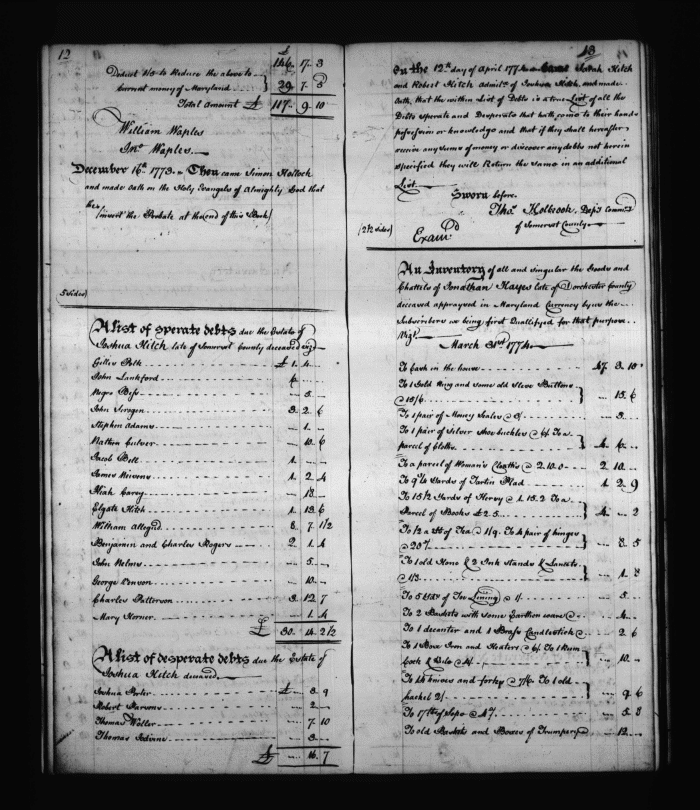 12
£
146 .. 17 .. 3
Deduct 1/5 to Reduce the above to
Current money of Maryland 29 .. 7 .. 5
Total Amount £ 117 .. 9 .. 10
William Waples
Jno. Waples
December 16th 1773. Then came Simon Kollock
and made oath on the Holy Evangels of Almighty God that
the
(insert the Probate at the end of this Book)
5 sides)
A list of sperate debts due the Estate of
Joshua Hitch late of Somerset County deceased viz
Gillis Polk £ 1 .. 4
John Lankford
Negro Bess 5
John Scrogen 3 .. 2 .. 6
Stephen Adams 1
Nathen Culver 10 .. 6
Jacob Bell 1
James Weivens 1 .. 2 .. 4
Hiah Carey 18
Elgate Hitch 1 .. 13 .. 6
William Allegud 3 .. 7 .. 1/2
Benjamin and Charles Rogers 2 .. 1 .. 4
John Nelms 5
George 10
Charles Patterson 3 .. 12 .. 7
Mary Horner 1 .. 4
£ 30 .. 14 .. 2 1/2
A list of desperate debts due the Estate of
Joshua Hitch deceased
Joshua Porter £ 3 .. 9
Robert Parsons 2
Thomas Weller 7 .. 10
Thomas 3
£ 16 .. 7
13
On the 12th day of April 1774 Came Sarah Hitch
and Robert Hitch admrs. of Joshua Hitch, and made
Oath, that the within List of Debts is a true List of all the
Debts Sperate and Desperate that hath come to their hands
possession or knowledge and that if they shall hereafter
receive any sums of money or discover any debts not herein
specified they will Return the same in an additional
List.
Sworn before.
Thos. Holbrook, Depy Commy
of Somerset County
(2 1/2 sides)
Examd
An Inventory of all and singular the Goods and
Chattels of Jonathan Hayes late of Dorchester County
deceased apprayed in Maryland Currency by us the
Subscribers we being first Quallifyed for that purpose
Vizt.
March 31st 1774
To Cash in the house 47 .. 3 .. 10
To 1 Gold Ring and some old Sleve Buttons
@ 15/6 15 .. 6
To 1 pair of Money Scales @ 3/ 3
To 1 pair of Silver Shoe buckles @ 6/ To a
parcel of Cloths
To a parcel of Woman's Cloaths @ 2.10.0 2 .. 10
To 9 1/2 Yards of Tartin Plad 1 .. 2 .. 9
To 15 1/2 Yards of Hersy @ 1.15.2 To a
Parcel of Books £2.5 4 .. 2
To 1/2 a lb of Tea @ 1/9. To 4 pair of hinges
@ 20/ 3 .. 5
To 1 old Hone & 2 Ink Stands & Lancets
@ 1/3 1 .. 3
To 5 Yds of Tow Lining @ 1/ 5
To 2 Baskets with some Earthen ware @ 4
To 1 decanter and 1 Brass Candlestick @ 2 .. 6
To 1 Box Iron and Heaters @ 6/ To 1 Rum
Cock & Do 4/ 10
To 14 knives and forks @ 7/6 To 1 old
hackel 2/ 9 .. 6
To 17 lb of Sope @ 4d 5 .. 8
To old Baskets and Boxes of Trumpery @ 12